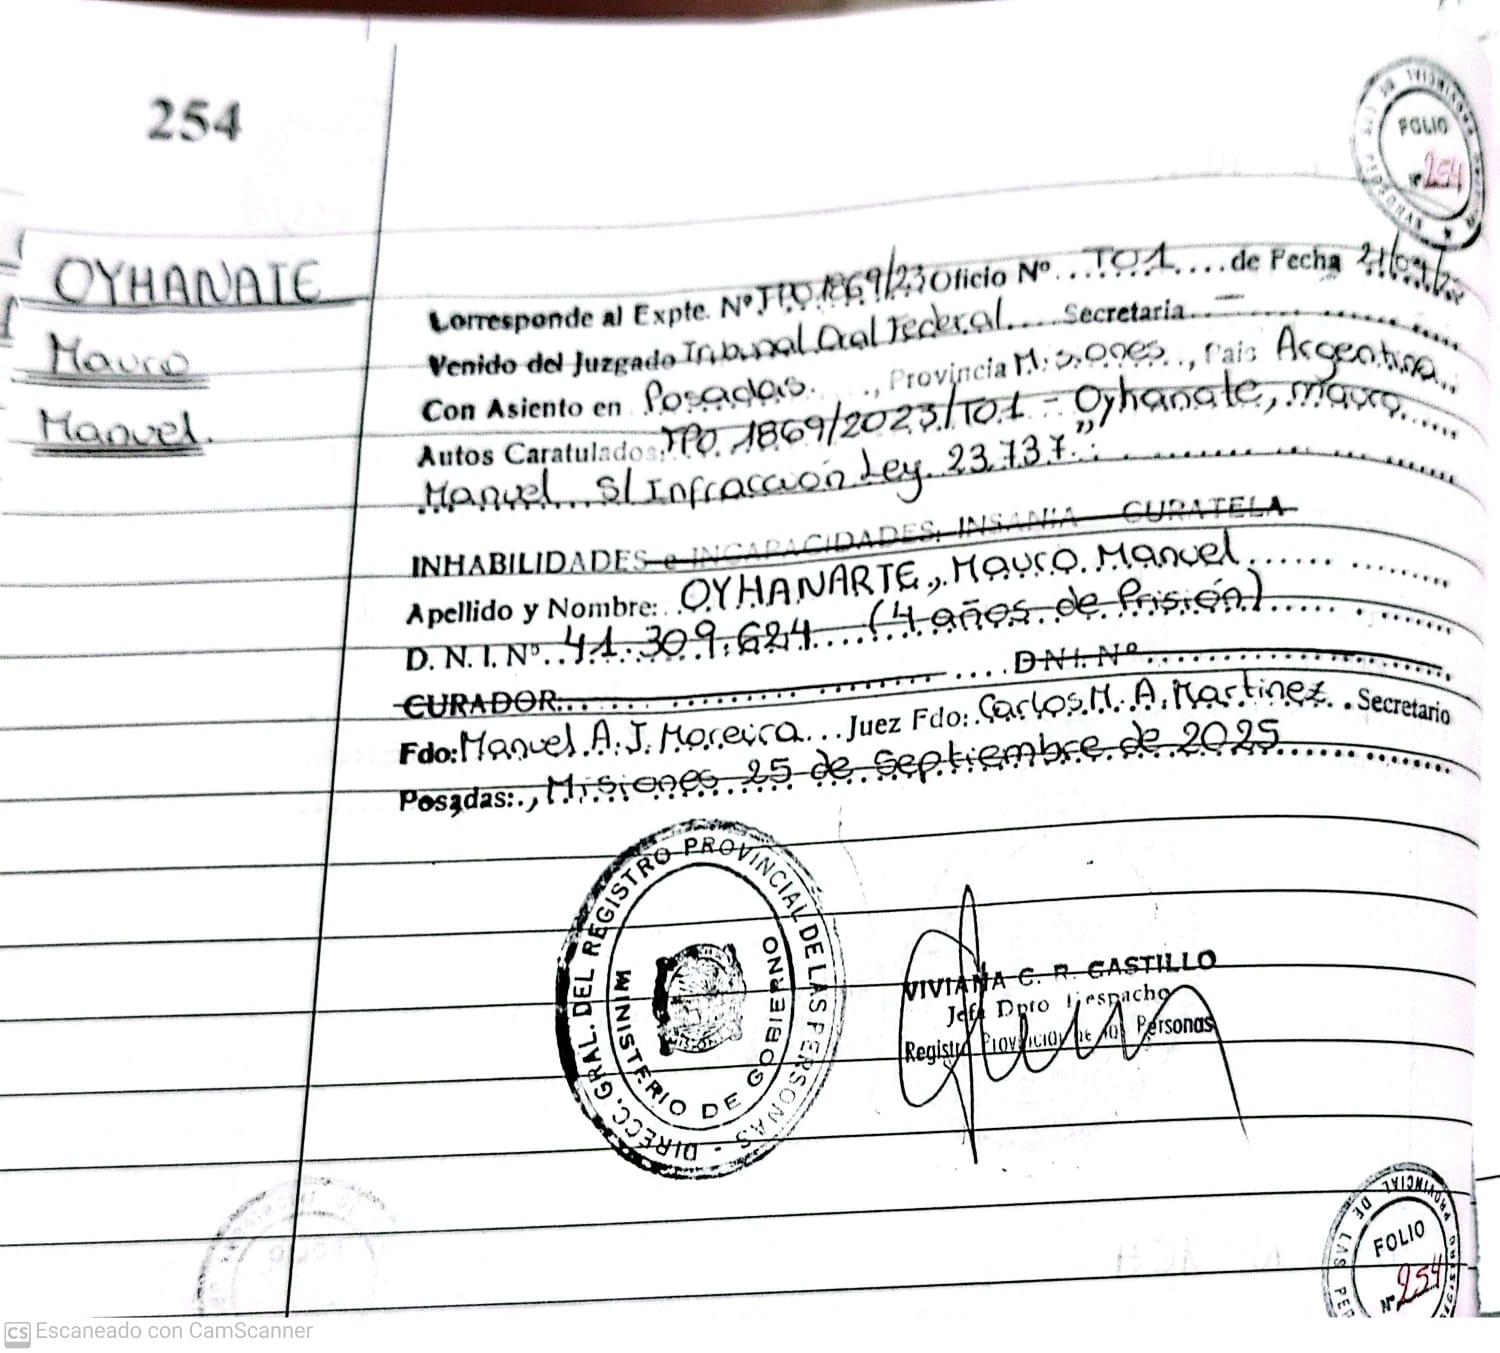 254
FOLIO
Nº 254
OYHANATE
Mauro
Manuel.
Corresponde al Expte. Nº FPO.1869/23 Oficio Nº....TO1....de Fecha
Venido del Juzgado Tribunal Oral Federal.... Secretaria. —
Con Asiento en Posadas. ...., Provincia Misiones.., Pais Argentina..
Autos Caratulados: FPO. 1869/2023/TO1 - Oyhanate, Mauro
Manuel... S/ Infracción Ley. 23.737".
INHABILIDADES e INCAPACIDADES, INSANIA - CURATELA
Apellido y Nombre: OYHANARTE, Mauro Manuel
D. N. I. Nº..41.309.624....(4 años de Prisión)
CURADOR: .... D.N.I. Nº
Fdo: Manuel A. J. Moreira...Juez Fdo: Carlos M. A. Martinez. . Secretario
Posadas:., Misiones 25 de Septiembre de 2025
DIRECC. GRAL. DEL REGISTRO PROVINCIAL DE LAS PERSONAS -
MINISTERIO DE GOBIERNO
VIVIANA C. R. CASTILLO
Jefe Dpto Despacho
Registro Provincial de las Personas
PROVINCIAL DE LAS PER
FOLIO
Nº 254
CS Escaneado con CamScanner